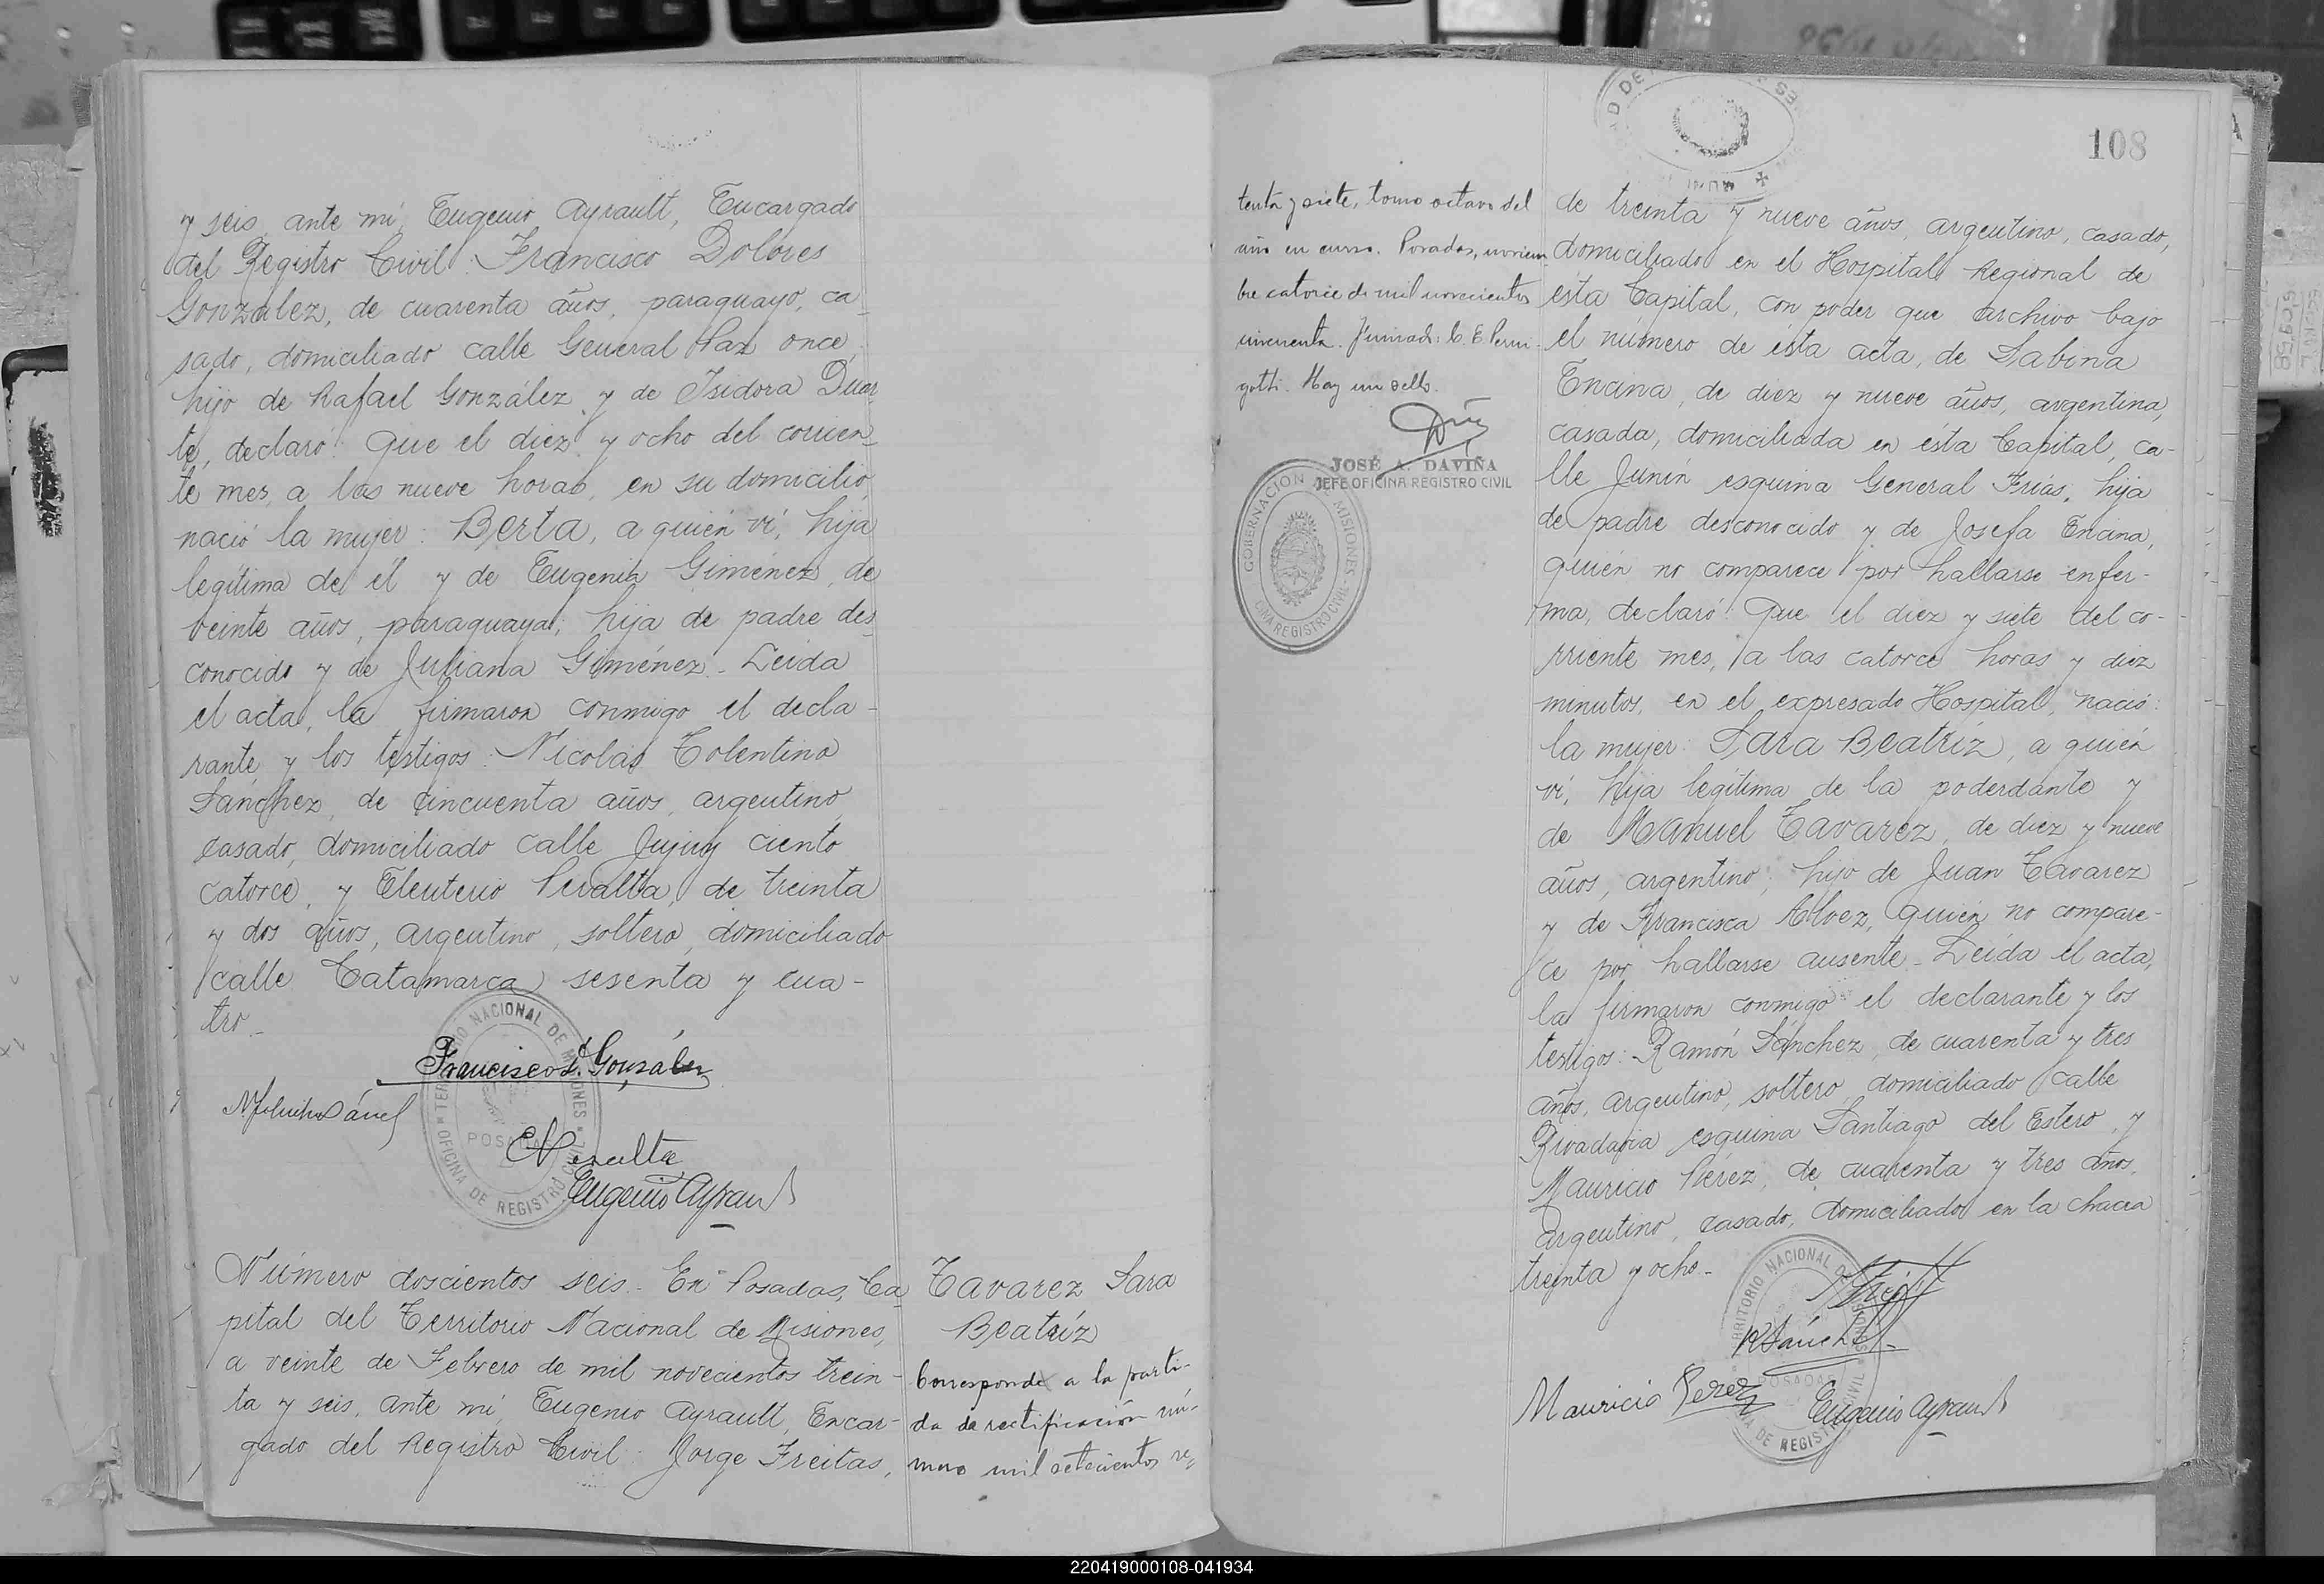 y seis, ante mí, Eugenio Ayrault, Encargado
del Registro Civil: Francisco Dolores
González, de cuarenta años, paraguayo, ca-
sado, domiciliado calle General Paz once,
hijo de Rafael González y de Isidora Duar-
te, declaró: Que el diez y ocho del corrien-
te mes, a las nueve horas, en su domicilio,
nació la mujer: Berta, a quién ví, hija
legítima de él y de Eugenia Giménez, de
veinte años, paraguaya; hija de padre des-
conocido y de Juliana Giménez.- Leída
el acta, la firmaron conmigo el decla-
rante y los testigos: Nicolás Tolentino
Sánchez, de cincuenta años, argentino,
casado, domiciliado calle Jujuy ciento
catorce, y Eleuterio Peralta, de treinta
y dos años, argentino, soltero, domiciliado
calle Catamarca sesenta y cua-
tro.-
Francisco D. González
E Peralta
Eugenio Ayrault
TERRITORIO NACIONAL DE MISIONES
POSADAS
OFICINA DE REGISTRO CIVIL
Número doscientos seis.- En Posadas, Ca-
pital del Territorio Nacional de Misiones,
a veinte de Febrero de mil novecientos trein-
ta y seis, ante mí, Eugenio Ayrault, Encar-
gado del Registro Civil: Jorge Freitas,
Tavarez Sara
Beatríz
Corresponde a la parti-
da de rectificación nú-
mero mil setecientos se-
tenta y siete, tomo octavo del
año en curso. Posadas, noviem-
bre catorce de mil novecientos
cincuenta. Firmado: C. E. Perni-
gotti. Hay un sello.
JOSÉ A. DAVIÑA
JEFE OFICINA REGISTRO CIVIL
GOBERNACION DE MISIONES
OFICINA REGISTRO CIVIL
108
de treinta y nueve años, argentino, casado,
domiciliado en el Hospital Regional de
ésta Capital, con poder que archivo bajo
el número de ésta acta, de Sabina
Encina, de diez y nueve años, argentina,
casada, domiciliada en ésta Capital, ca-
lle Junín esquina General Frías, hija
de padre desconocido y de Josefa Encina,
quién no comparece por hallarse enfer-
ma, declaró: Que el diez y siete del co-
rriente mes, a las catorce horas y diez
minutos, en el expresado Hospital, nació:
la mujer: Sara Beatríz, a quién
ví, hija legítima de la poderdante y
de Manuel Tavarez, de diez y nueve
años, argentino; hijo de Juan Tavarez
y de Francisca Alvez, quién no compare-
ce por hallarse ausente.- Leída el acta,
la firmaron conmigo el declarante y los
testigos: Ramón Sánchez, de cuarenta y tres
años, argentino, soltero, domiciliado calle
Rivadavia esquina Santiago del Estero, y
Mauricio Pérez, de cuarenta y tres años,
argentino, casado, domiciliado en la chacra
treinta y ocho.-
R Sánchez
Mauricio Perez
Eugenio Ayrault
TERRITORIO NACIONAL DE MISIONES
POSADAS
OFICINA DE REGISTRO CIVIL
220419000108-041934